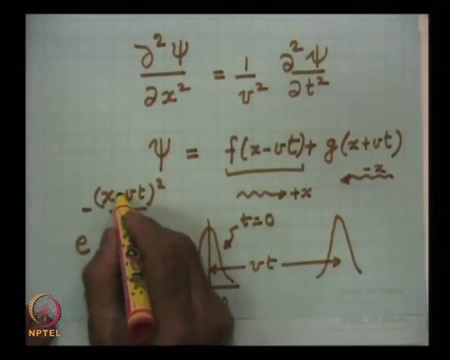 ∂²ψ/∂x² = 1/v² ∂²ψ/∂t²
ψ = f(x-vt) + g(x+vt)
→ +x ← -x
e^-(x-vt)²
t=0
← vt →
NPTEL